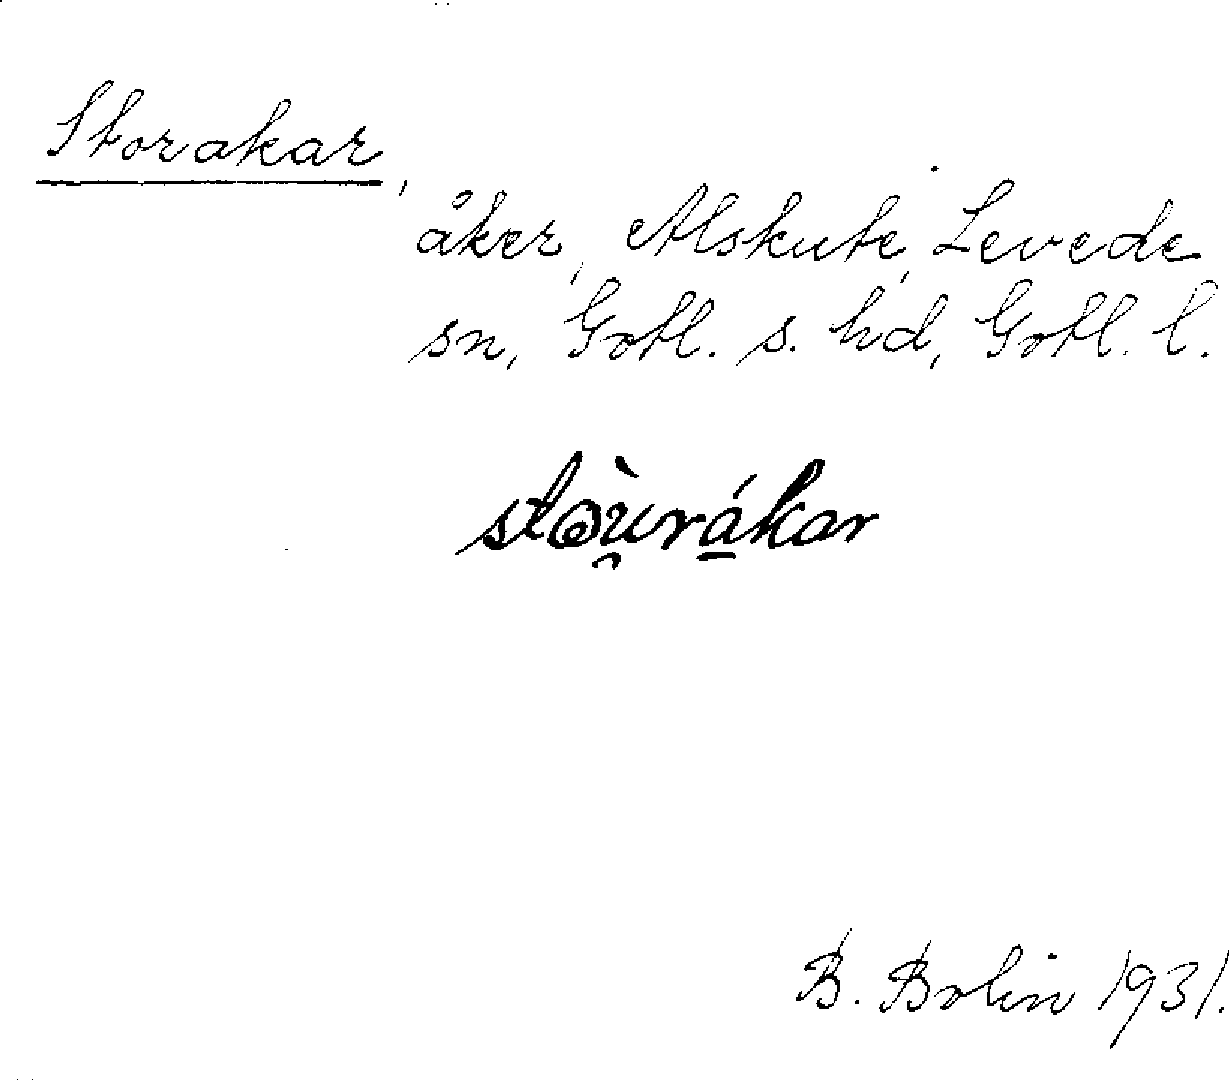 Storakar,
åker, Alskute, Levede
sn, Gotl. s. hd, Gotl. l.
stòu̯rákar
B. Bolin 1931.